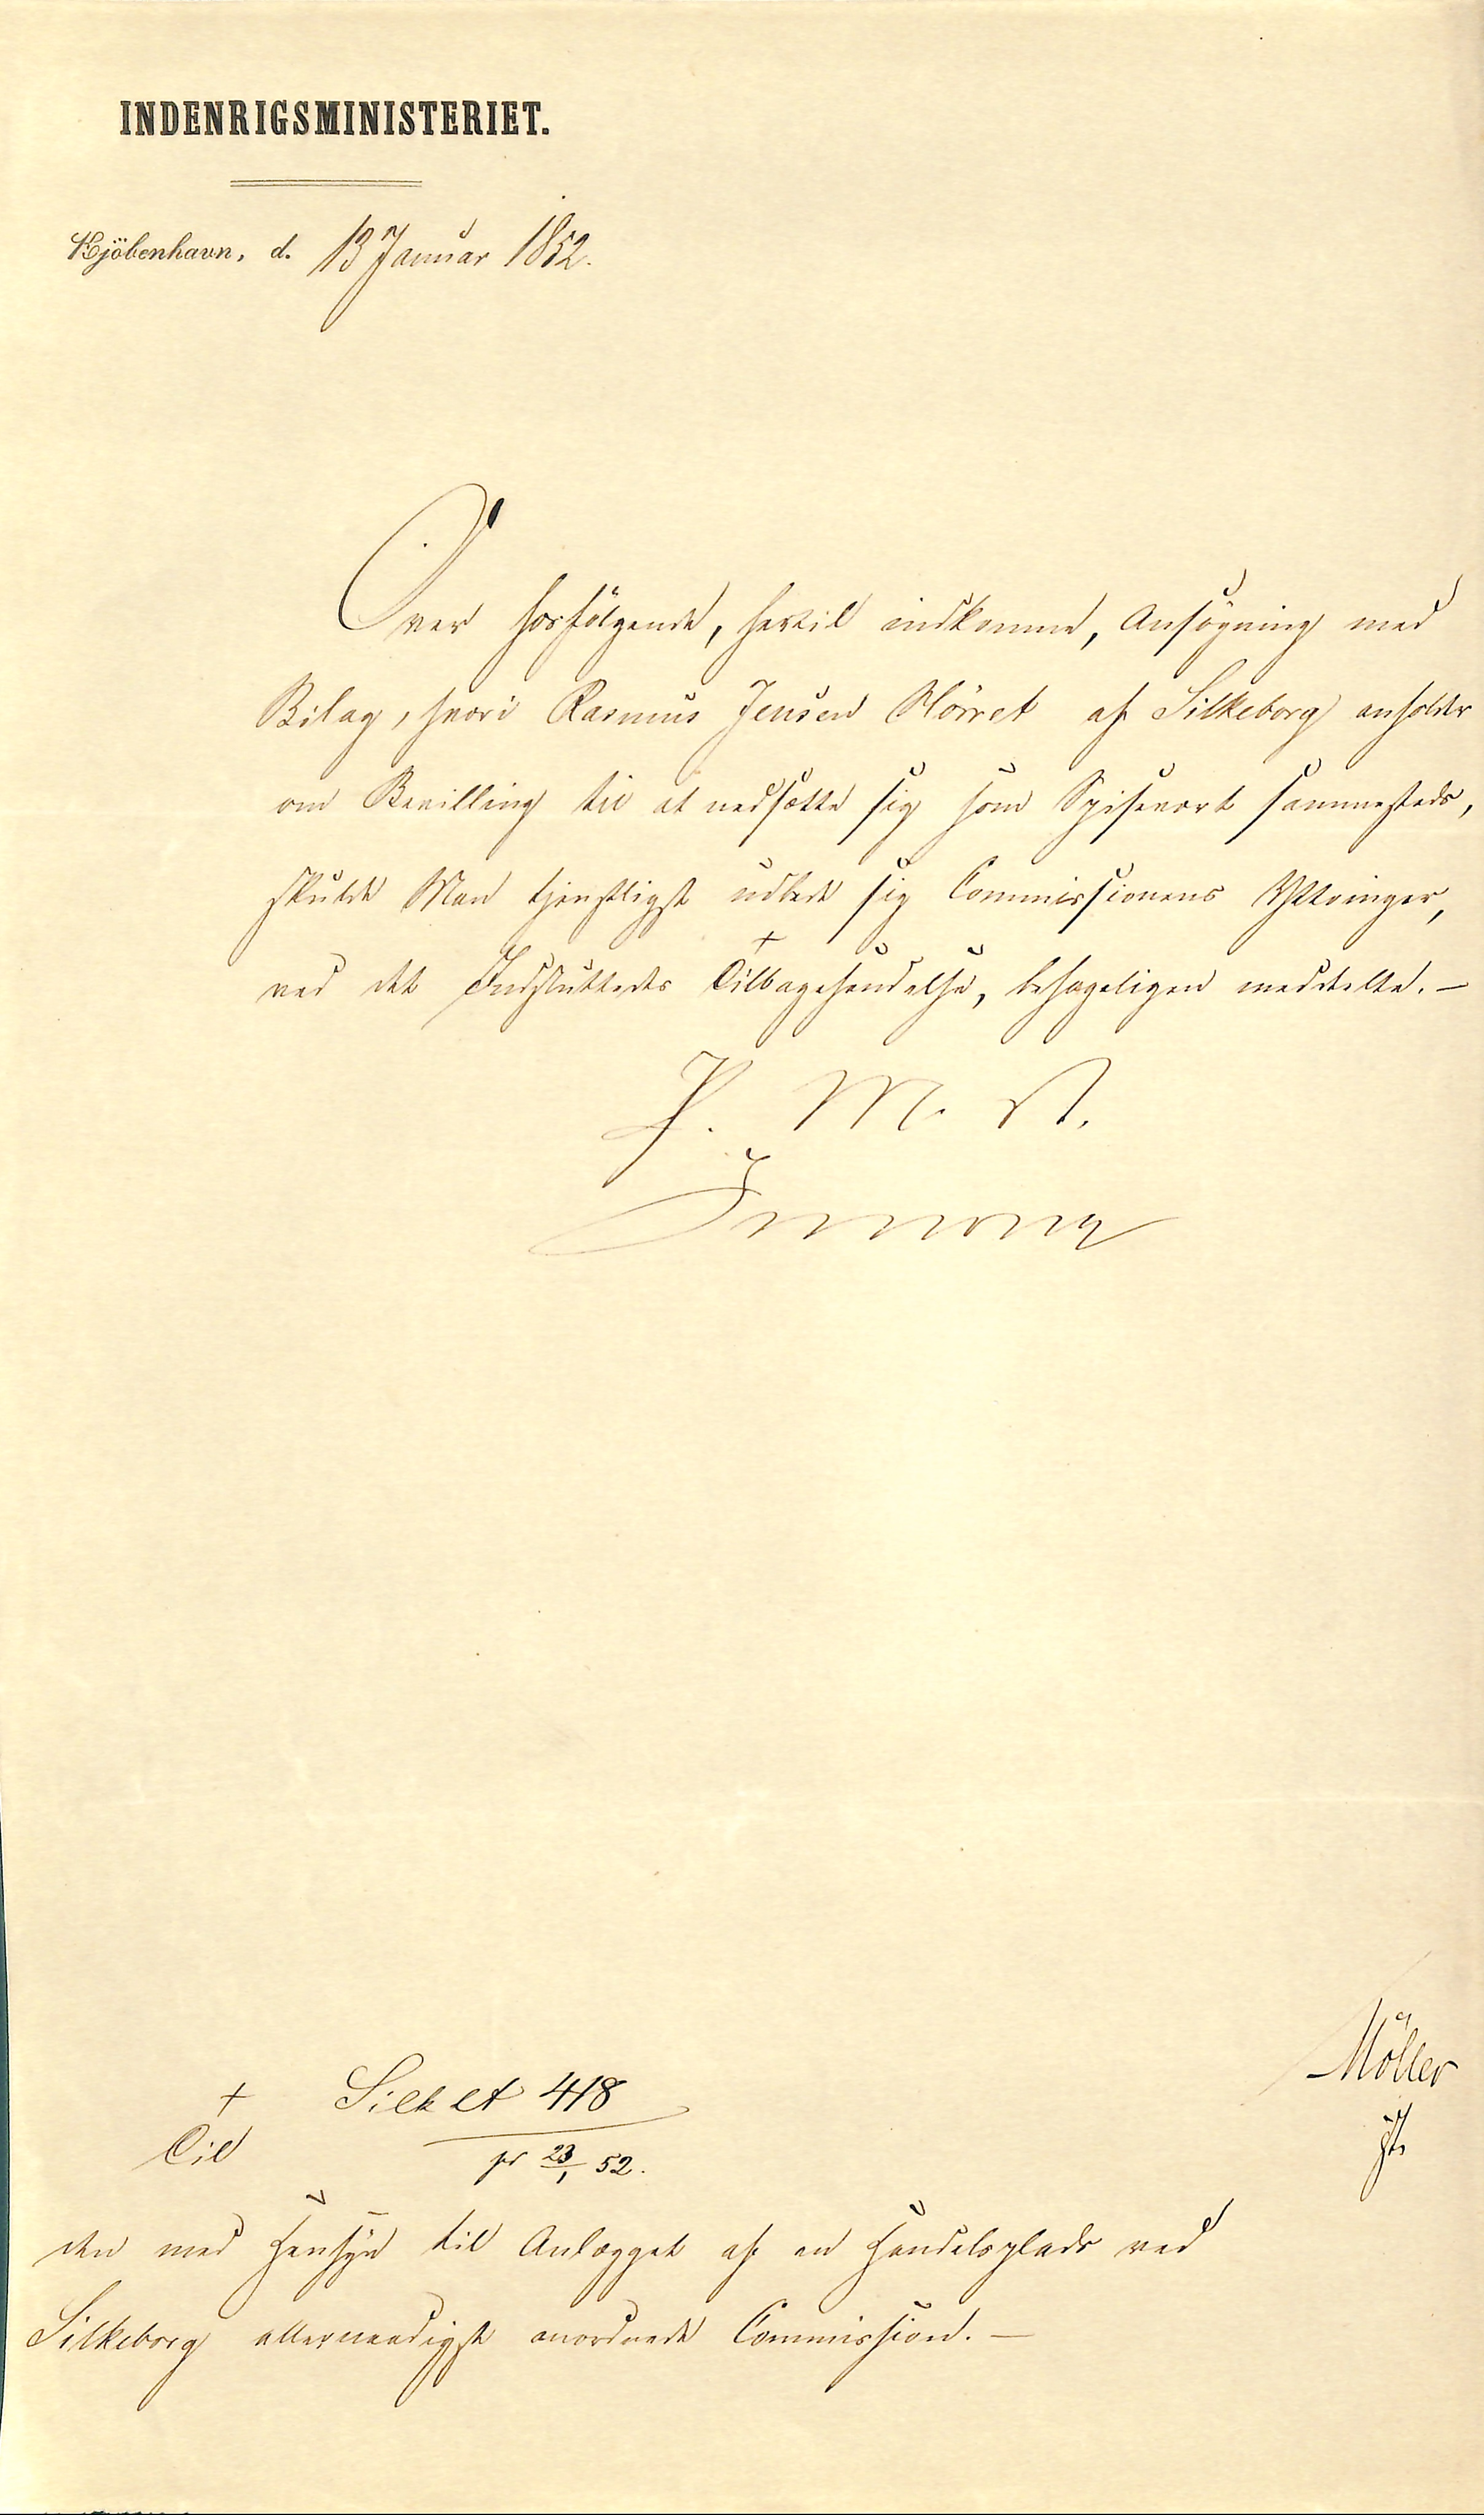 INDENRIGSMINISTERIET.
Kjöbenhavn, d. 13 Januar 1852.
Over hosfølgende, hertil indkomne, Ansøgning med
Bilag, hvori Rasmus Jensen Hörret af Silkeborg anholder
om Bevilling til at nedsætte sig som Spisevært sammesteds,
skulde Man tjenstligst udbede sig Commissionens Yttringer,
ved det Indsluttedes + Tilbagesendelse, behageligen meddelte. —
P. M. V.
Möller
+ Silk et 418
Til pr 23/1 52.
den med Hensyn til Anlægget af en Handelsplads ved
Silkeborg allernaadigst anordnede Commission. —